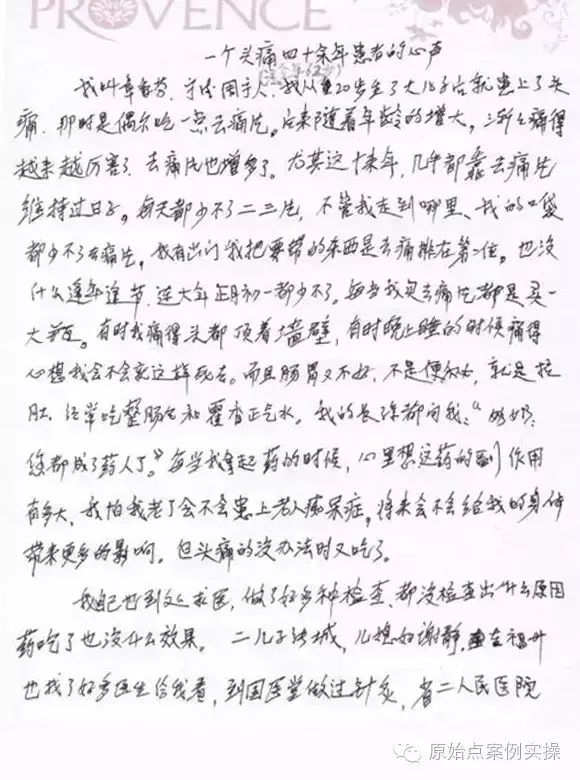 PROVENCE
一个头痛四十余年患者的心声
(注今年62岁)
我叫章香芬,宁德周宁人,我从20岁生了大儿子后就患上了头
痛,那时是偶尔吃一点去痛片。后来随着年龄的增大,渐渐痛得
越来越厉害了,去痛片也增多了。尤其这十来年,几乎都靠去痛片
维持过日子。每天都少不了二三片,不管我走到哪里,我的口袋
都少不了去痛片。我有出门我把要带的东西是去痛排在第一位。也没
什么逢年逢节,连大年正月初一都少不了。每当我买去痛片都是买一
大瓶。有时我痛得头都顶着墙壁,有时晚上睡的时候痛得
心想我会不会就这样死去。而且肠胃又不好,不是便秘,就是拉
肚,经常吃整肠生和藿香正气水。我的长孙都问我:“奶奶,
您都成了药人了。”每当我拿起药的时候,心里想这药的副作用
有多大,我怕我老了会不会患上老人痴呆症,将来会不会给我的身体
带来更多的影响。但头痛的没办法时又吃了。
我自己也到处求医,做了好多种检查,都没检查出什么原因
药吃了也没什么效果。二儿子法城,儿媳妇谢静,在福州
也找了好多医生给我看,到国医堂做过针灸,省二人民医院
原始点案例实操